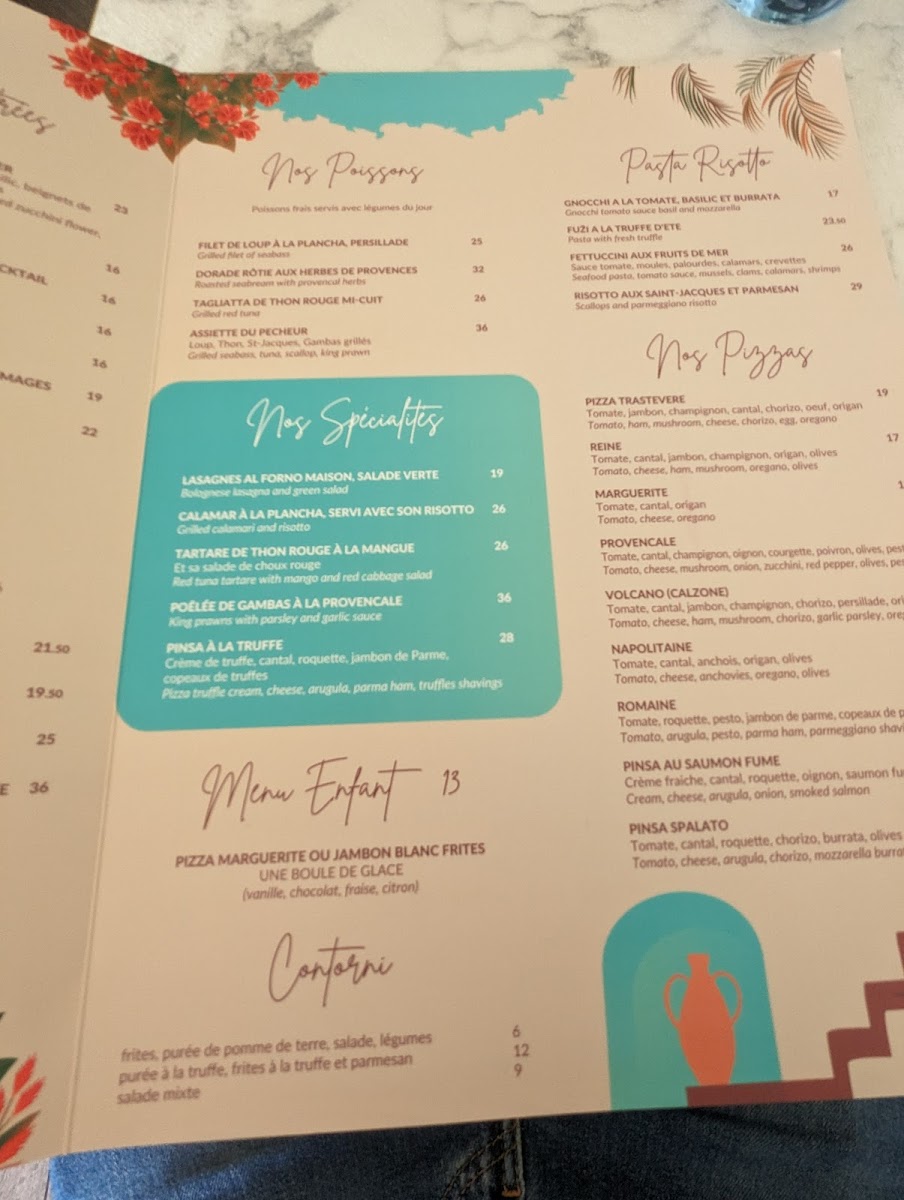 23
beignets de
zucchini flower,
16
CKTAIL
16
16
16
MAGES
19
22
21.50
19.50
25
E 36
Nos Poissons
Poissons frais servis avec légumes du jour
FILET DE LOUP À LA PLANCHA, PERSILLADE 25
Grilled filet of seabass
DORADE RÔTIE AUX HERBES DE PROVENCES 32
Roasted seabream with provencal herbs
TAGLIATTA DE THON ROUGE MI-CUIT 26
Grilled red tuna
ASSIETTE DU PECHEUR 36
Loup, Thon, St-Jacques, Gambas grillés
Grilled seabass, tuna, scallop, king prawn
Nos Spécialités
LASAGNES AL FORNO MAISON, SALADE VERTE 19
Bolognese lasagna and green salad
CALAMAR À LA PLANCHA, SERVI AVEC SON RISOTTO 26
Grilled calamari and risotto
TARTARE DE THON ROUGE À LA MANGUE 26
Et sa salade de choux rouge
Red tuna tartare with mango and red cabbage salad
POÊLÉE DE GAMBAS À LA PROVENCALE 36
King prawns with parsley and garlic sauce
PINSA À LA TRUFFE 28
Crème de truffe, cantal, roquette, jambon de Parme,
copeaux de truffes
Pizza truffle cream, cheese, arugula, parma ham, truffles shavings
Menu Enfant 13
PIZZA MARGUERITE OU JAMBON BLANC FRITES
UNE BOULE DE GLACE
(vanille, chocolat, fraise, citron)
Contorni
frites, purée de pomme de terre, salade, légumes 6
purée à la truffe, frites à la truffe et parmesan 12
salade mixte 9
Pasta Risotto
GNOCCHI A LA TOMATE, BASILIC ET BURRATA 17
Gnocchi tomato sauce basil and mozzarella
FUŽI A LA TRUFFE D'ETE 23.50
Pasta with fresh truffle
FETTUCCINI AUX FRUITS DE MER 26
Sauce tomate, moules, palourdes, calamars, crevettes
Seafood pasta, tomato sauce, mussels, clams, calamars, shrimps
RISOTTO AUX SAINT-JACQUES ET PARMESAN 29
Scallops and parmeggiano risotto
Nos Pizzas
PIZZA TRASTEVERE 19
Tomate, jambon, champignon, cantal, chorizo, oeuf, origan
Tomato, ham, mushroom, cheese, chorizo, egg, oregano
REINE 17
Tomate, cantal, jambon, champignon, origan, olives
Tomato, cheese, ham, mushroom, oregano, olives
MARGUERITE 1
Tomate, cantal, origan
Tomato, cheese, oregano
PROVENCALE
Tomate, cantal, champignon, oignon, courgette, poivron, olives, pest
Tomato, cheese, mushroom, onion, zucchini, red pepper, olives, pe
VOLCANO (CALZONE)
Tomate, cantal, jambon, champignon, chorizo, persillade, ori
Tomato, cheese, ham, mushroom, chorizo, garlic parsley, ore
NAPOLITAINE
Tomate, cantal, anchois, origan, olives
Tomato, cheese, anchovies, oregano, olives
ROMAINE
Tomate, roquette, pesto, jambon de parme, copeaux de p
Tomato, arugula, pesto, parma ham, parmeggiano shavi
PINSA AU SAUMON FUME
Crème fraiche, cantal, roquette, oignon, saumon fu
Cream, cheese, arugula, onion, smoked salmon
PINSA SPALATO
Tomate, cantal, roquette, chorizo, burrata, olives
Tomato, cheese, arugula, chorizo, mozzarella burra